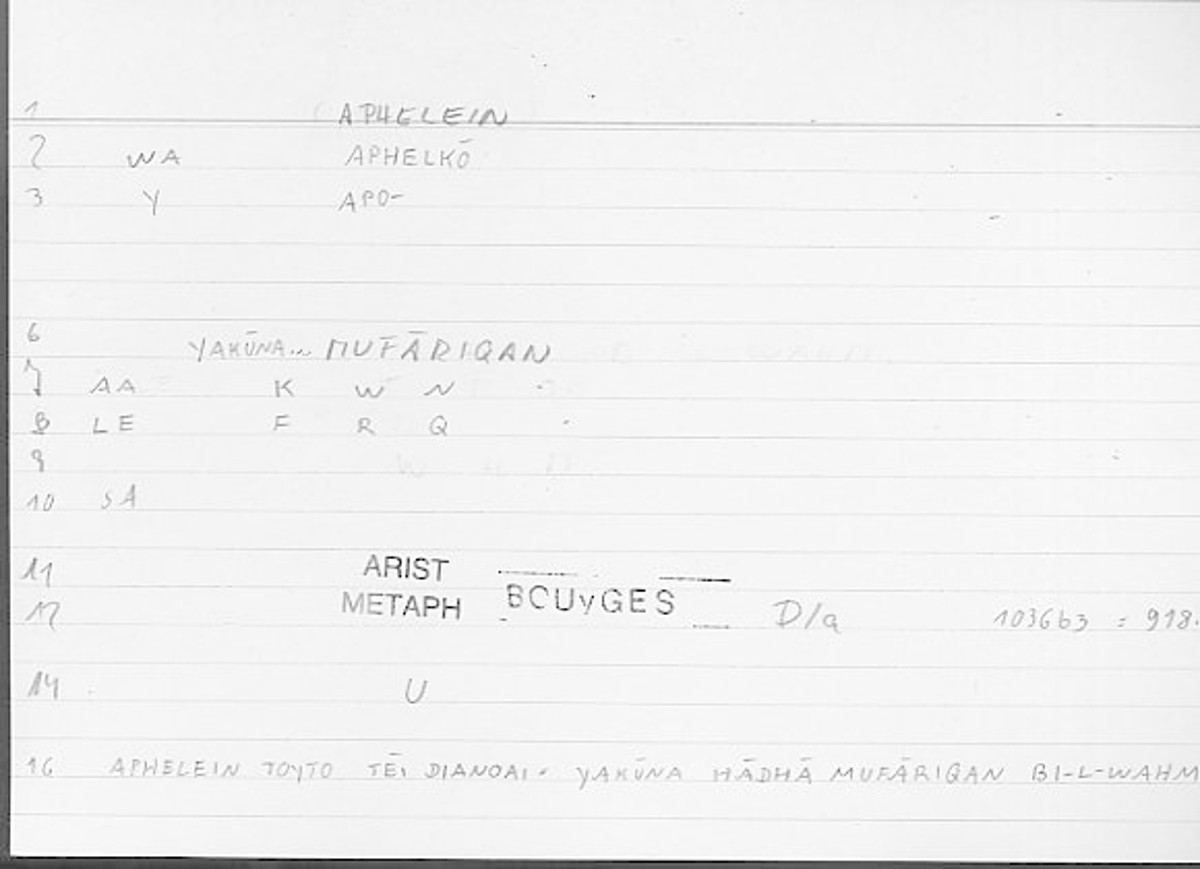 1 APHELEIN
2 WA APHELKŌ
3 Y APO-
6 YAKŪNA... MUFĀRIQAN
7 AA K W N
8 LE F R Q
9
10 SA
11 ARIST
12 METAPH BOUyGES D/a 1036b3 = 918.
14 U
16 APHELEIN TOYTO TĒI DIANOAI = YAKŪNA HĀDHĀ MUFĀRIQAN BI-L-WAHM